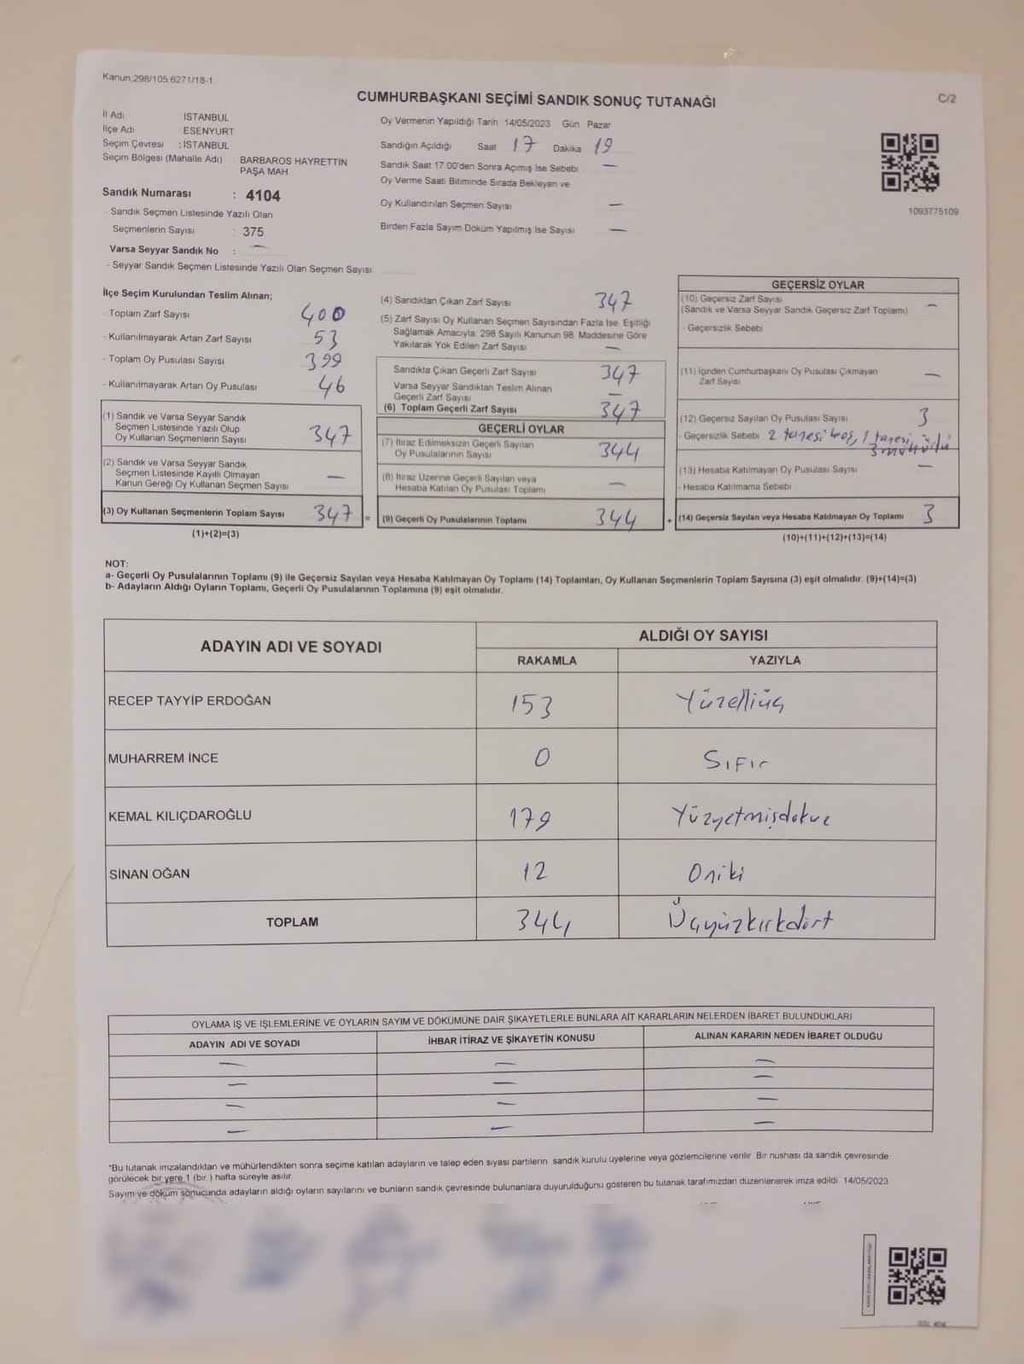 Kanun;298/105 6271/18-1
CUMHURBAŞKANI SEÇİMİ SANDIK SONUÇ TUTANAĞI
C/2
İl Adı İSTANBUL
İlçe Adı ESENYURT
Seçim Çevresi : İSTANBUL
Seçim Bölgesi (Mahalle Adı) BARBAROS HAYRETTİN PAŞA MAH.
Sandık Numarası : 4104
- Sandık Seçmen Listesinde Yazılı Olan
Seçmenlerin Sayısı : 375
Varsa Seyyar Sandık No : —
- Seyyar Sandık Seçmen Listesinde Yazılı Olan Seçmen Sayısı
Oy Vermenin Yapıldığı Tarih 14/05/2023 Gün Pazar
Sandığın Açıldığı Saat 17 Dakika 19
Sandık Saat 17.00'den Sonra Açımış İse Sebebi —
Oy Verme Saati Bitiminde Sırada Bekleyen ve
Oy Kullandırılan Seçmen Sayısı —
Birden Fazla Sayım Döküm Yapılmış İse Sayısı —
1093775109
İlçe Seçim Kurulundan Teslim Alınan;
- Toplam Zarf Sayısı 400
- Kullanılmayarak Artan Zarf Sayısı 53
- Toplam Oy Pusulası Sayısı 399
- Kullanılmayarak Artan Oy Pusulası 46
(1) Sandık ve Varsa Seyyar Sandık
Seçmen Listesinde Yazılı Olup
Oy Kullanan Seçmenlerin Sayısı 347
(2) Sandık ve Varsa Seyyar Sandık
Seçmen Listesinde Kayıtlı Olmayan
Kanun Gereği Oy Kullanan Seçmen Sayısı —
(3) Oy Kullanan Seçmenlerin Toplam Sayısı 347 =
(1)+(2)=(3)
(4) Sandıktan Çıkan Zarf Sayısı 347
(5) Zarf Sayısı Oy Kullanan Seçmen Sayısından Fazla İse, Eşitliği
Sağlamak Amacıyla: 298 Sayılı Kanunun 98. Maddesine Göre
Yakılarak Yok Edilen Zarf Sayısı —
Sandıkta Çıkan Geçerli Zarf Sayısı 347
Varsa Seyyar Sandıktan Teslim Alınan
Geçerli Zarf Sayısı —
(6) Toplam Geçerli Zarf Sayısı 347
GEÇERLİ OYLAR
(7) İtiraz Edilmeksizin Geçerli Sayılan
Oy Pusulalarının Sayısı 344
(8) İtiraz Üzerine Geçerli Sayılan veya
Hesaba Katılan Oy Pusulası Toplamı —
(9) Geçerli Oy Pusulalarının Toplamı 344 +
GEÇERSİZ OYLAR
(10) Geçersiz Zarf Sayısı —
(Sandık ve Varsa Seyyar Sandık Geçersiz Zarf Toplamı)
- Geçersizlik Sebebi
(11) İçinden Cumhurbaşkanı Oy Pusulası Çıkmayan
Zarf Sayısı —
(12) Geçersiz Sayılan Oy Pusulası Sayısı 3
- Geçersizlik Sebebi 2 tanesi boş, 1 tanesi
3 mühürlü
(13) Hesaba Katılmayan Oy Pusulası Sayısı —
- Hesaba Katılmama Sebebi
(14) Geçersiz Sayılan veya Hesaba Katılmayan Oy Toplamı 3
(10)+(11)+(12)+(13)=(14)
NOT:
a- Geçerli Oy Pusulalarının Toplamı (9) ile Geçersiz Sayılan veya Hesaba Katılmayan Oy Toplamı (14) Toplamları, Oy Kullanan Seçmenlerin Toplam Sayısına (3) eşit olmalıdır. (9)+(14)=(3)
b- Adayların Aldığı Oyların Toplamı, Geçerli Oy Pusulalarının Toplamına (9) eşit olmalıdır.
ADAYIN ADI VE SOYADI ALDIĞI OY SAYISI
RAKAMLA YAZIYLA
RECEP TAYYİP ERDOĞAN 153 Yüzelliüç
MUHARREM İNCE 0 Sıfır
KEMAL KILIÇDAROĞLU 179 Yüzyetmişdokuz
SİNAN OĞAN 12 Oniki
TOPLAM 344 Üçyüzkırkdört
OYLAMA İŞ VE İŞLEMLERİNE VE OYLARIN SAYIM VE DÖKÜMÜNE DAİR ŞİKAYETLERLE BUNLARA AİT KARARLARIN NELERDEN İBARET BULUNDUKLARI
ADAYIN ADI VE SOYADI İHBAR İTİRAZ VE ŞİKAYETİN KONUSU ALINAN KARARIN NEDEN İBARET OLDUĞU
— — —
— — —
— — —
— — —
*Bu tutanak imzalandıktan ve mühürlendikten sonra seçime katılan adayların ve talep eden siyasi partilerin sandık kurulu üyelerine veya gözlemcilerine verilir. Bir nushası da sandık çevresinde
görülecek bir yere 1 (bir ) hafta süreyle asılır.
Sayım ve döküm sonucunda adayların aldığı oyların sayılarını ve bunların sandık çevresinde bulunanlara duyurulduğunu gösteren bu tutanak tarafımızdan düzenlenerek imza edildi 14/05/2023